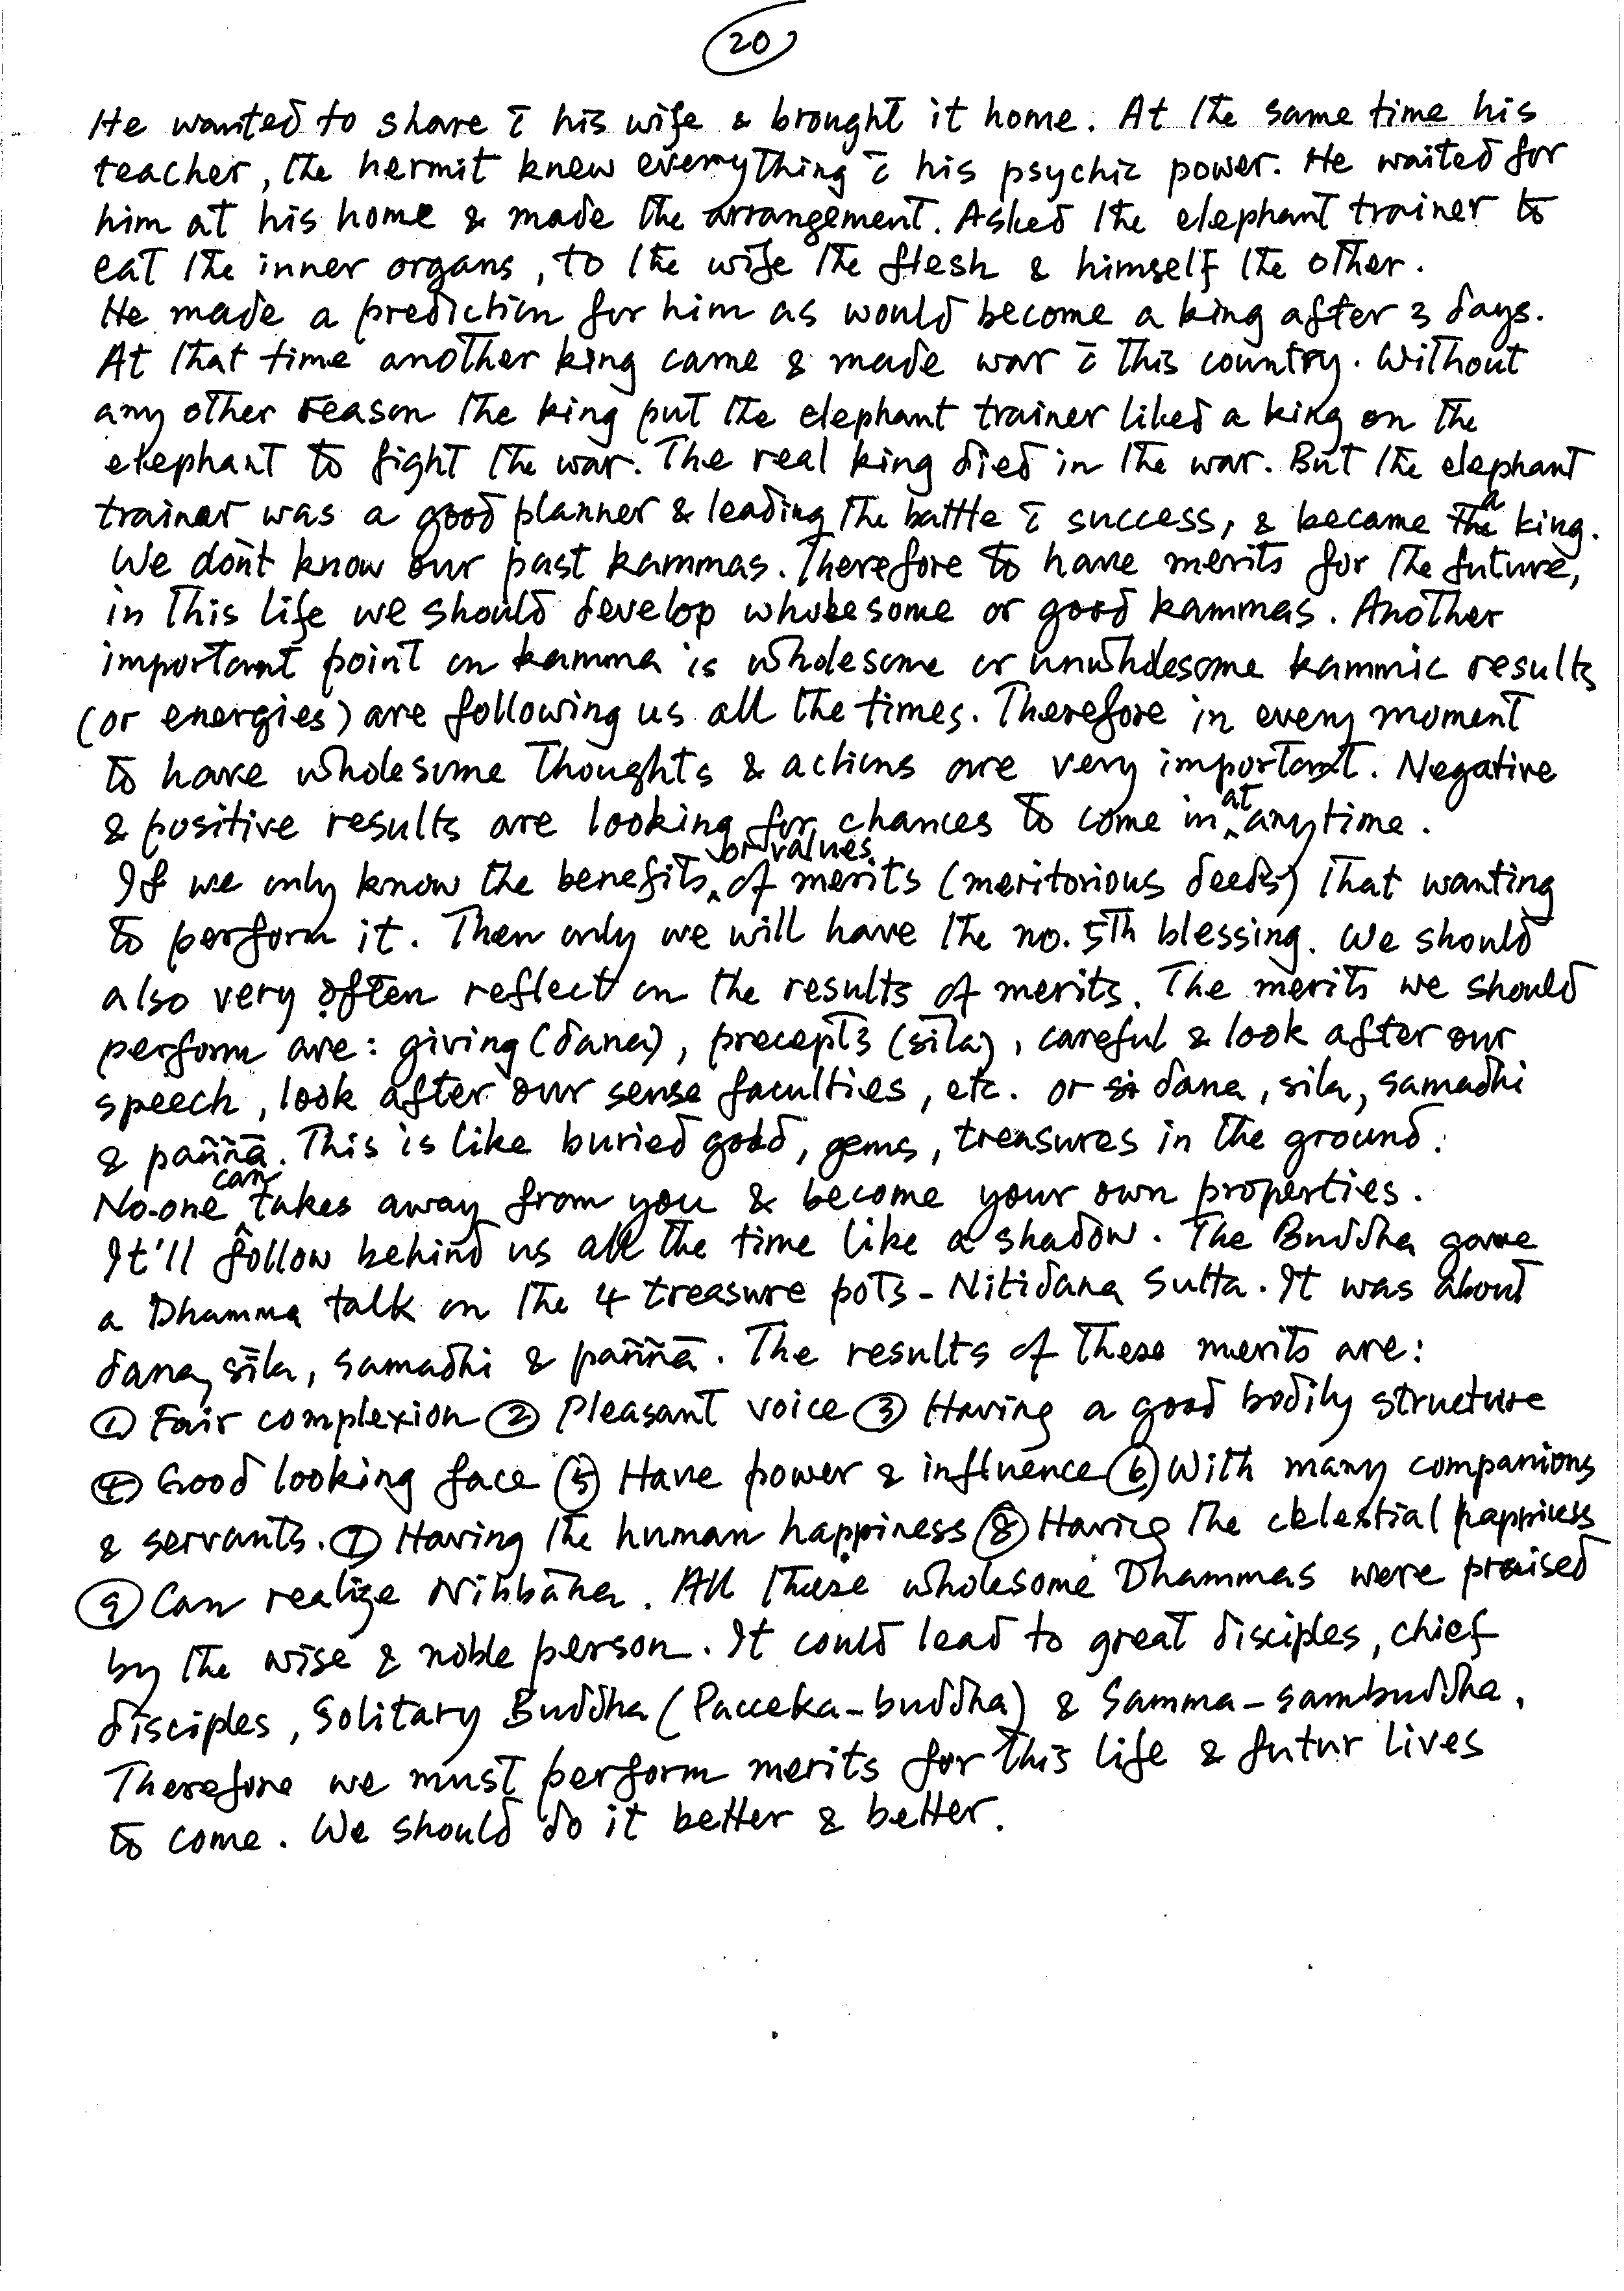 20
He wanted to share c̄ his wife & brought it home. At the same time his
teacher, the hermit knew everything c̄ his psychic power. He waited for
him at his home & made the arrangement. Asked the elephant trainer to
eat the inner organs, to the wife the flesh & himself the other.
He made a prediction for him as would become a king after 3 days.
At that time another king came & made war c̄ this country. Without
any other reason the king put the elephant trainer liked a king on the
elephant to fight the war. The real king died in the war. But the elephant
trainer was a good planner & leading the battle c̄ success, & became a king.
We don't know our past kammas. Therefore to have merits for the future,
in this life we should develop wholesome or good kammas. Another
important point on kamma is wholesome or unwholesome kammic results
(or energies) are following us all the times. Therefore in every moment
to have wholesome thoughts & actions are very important. Negative
& positive results are looking for chances to come in at anytime.
If we only know the benefits or values of merits (meritorious deeds) that wanting
to perform it. Then only we will have the no. 5th blessing. We should
also very often reflect on the results of merits. The merits we should
perform are: giving (dana), precepts (sīla), careful & look after our
speech, look after our sense faculties, etc. or dana, sila, samadhi
& paññā. This is like buried gold, gems, treasures in the ground.
No-one can takes away from you & become your own properties.
It'll follow behind us all the time like a shadow. The Buddha gave
a Dhamma talk on the 4 treasure pots - Nitidana Sutta. It was about
dana, sīla, samadhi & paññā. The results of these merits are:
① Fair complexion ② Pleasant voice ③ Having a good bodily structure
④ Good looking face ⑤ Have power & influence ⑥ With many companions
& servants. ⑦ Having the human happiness ⑧ Having the celestial happiness
⑨ Can realize Nibbāna. All these wholesome Dhammas were praised
by the wise & noble person. It could lead to great disciples, chief
disciples, Solitary Buddha (Pacceka-buddha) & Samma-sambuddha.
Therefore we must perform merits for this life & futur lives
to come. We should do it better & better.